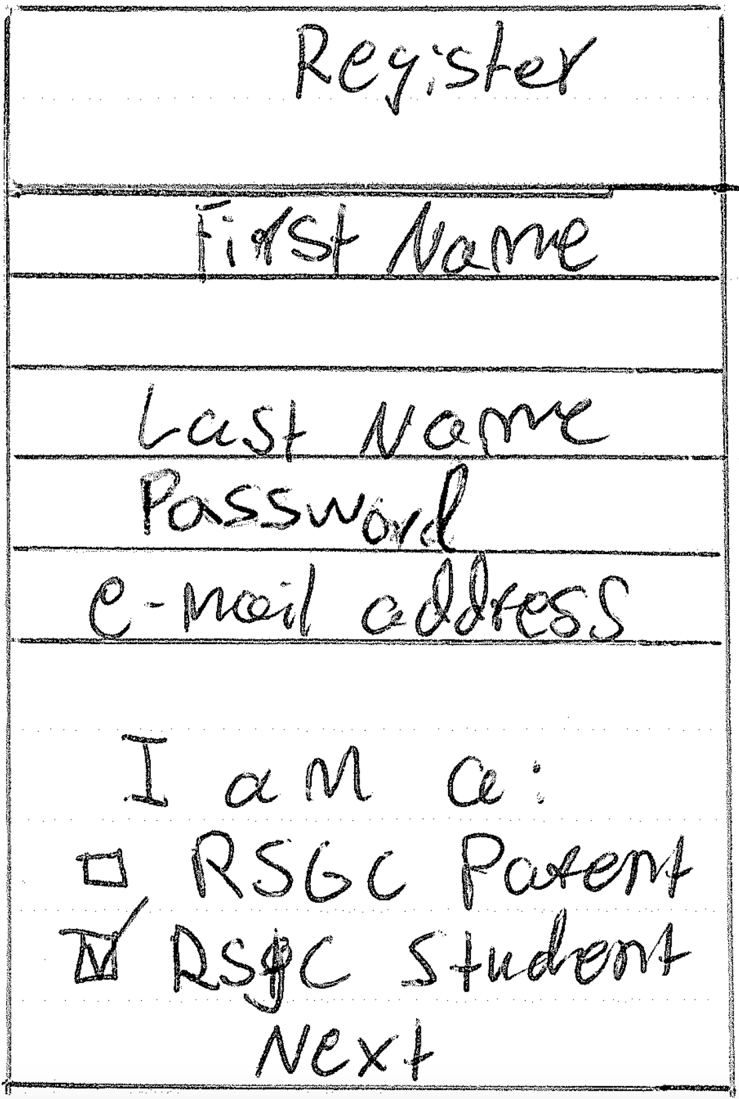 Register
First Name
Last Name
Password
e-mail address
I am a:
RSGC Parent
RSGC Student
Next